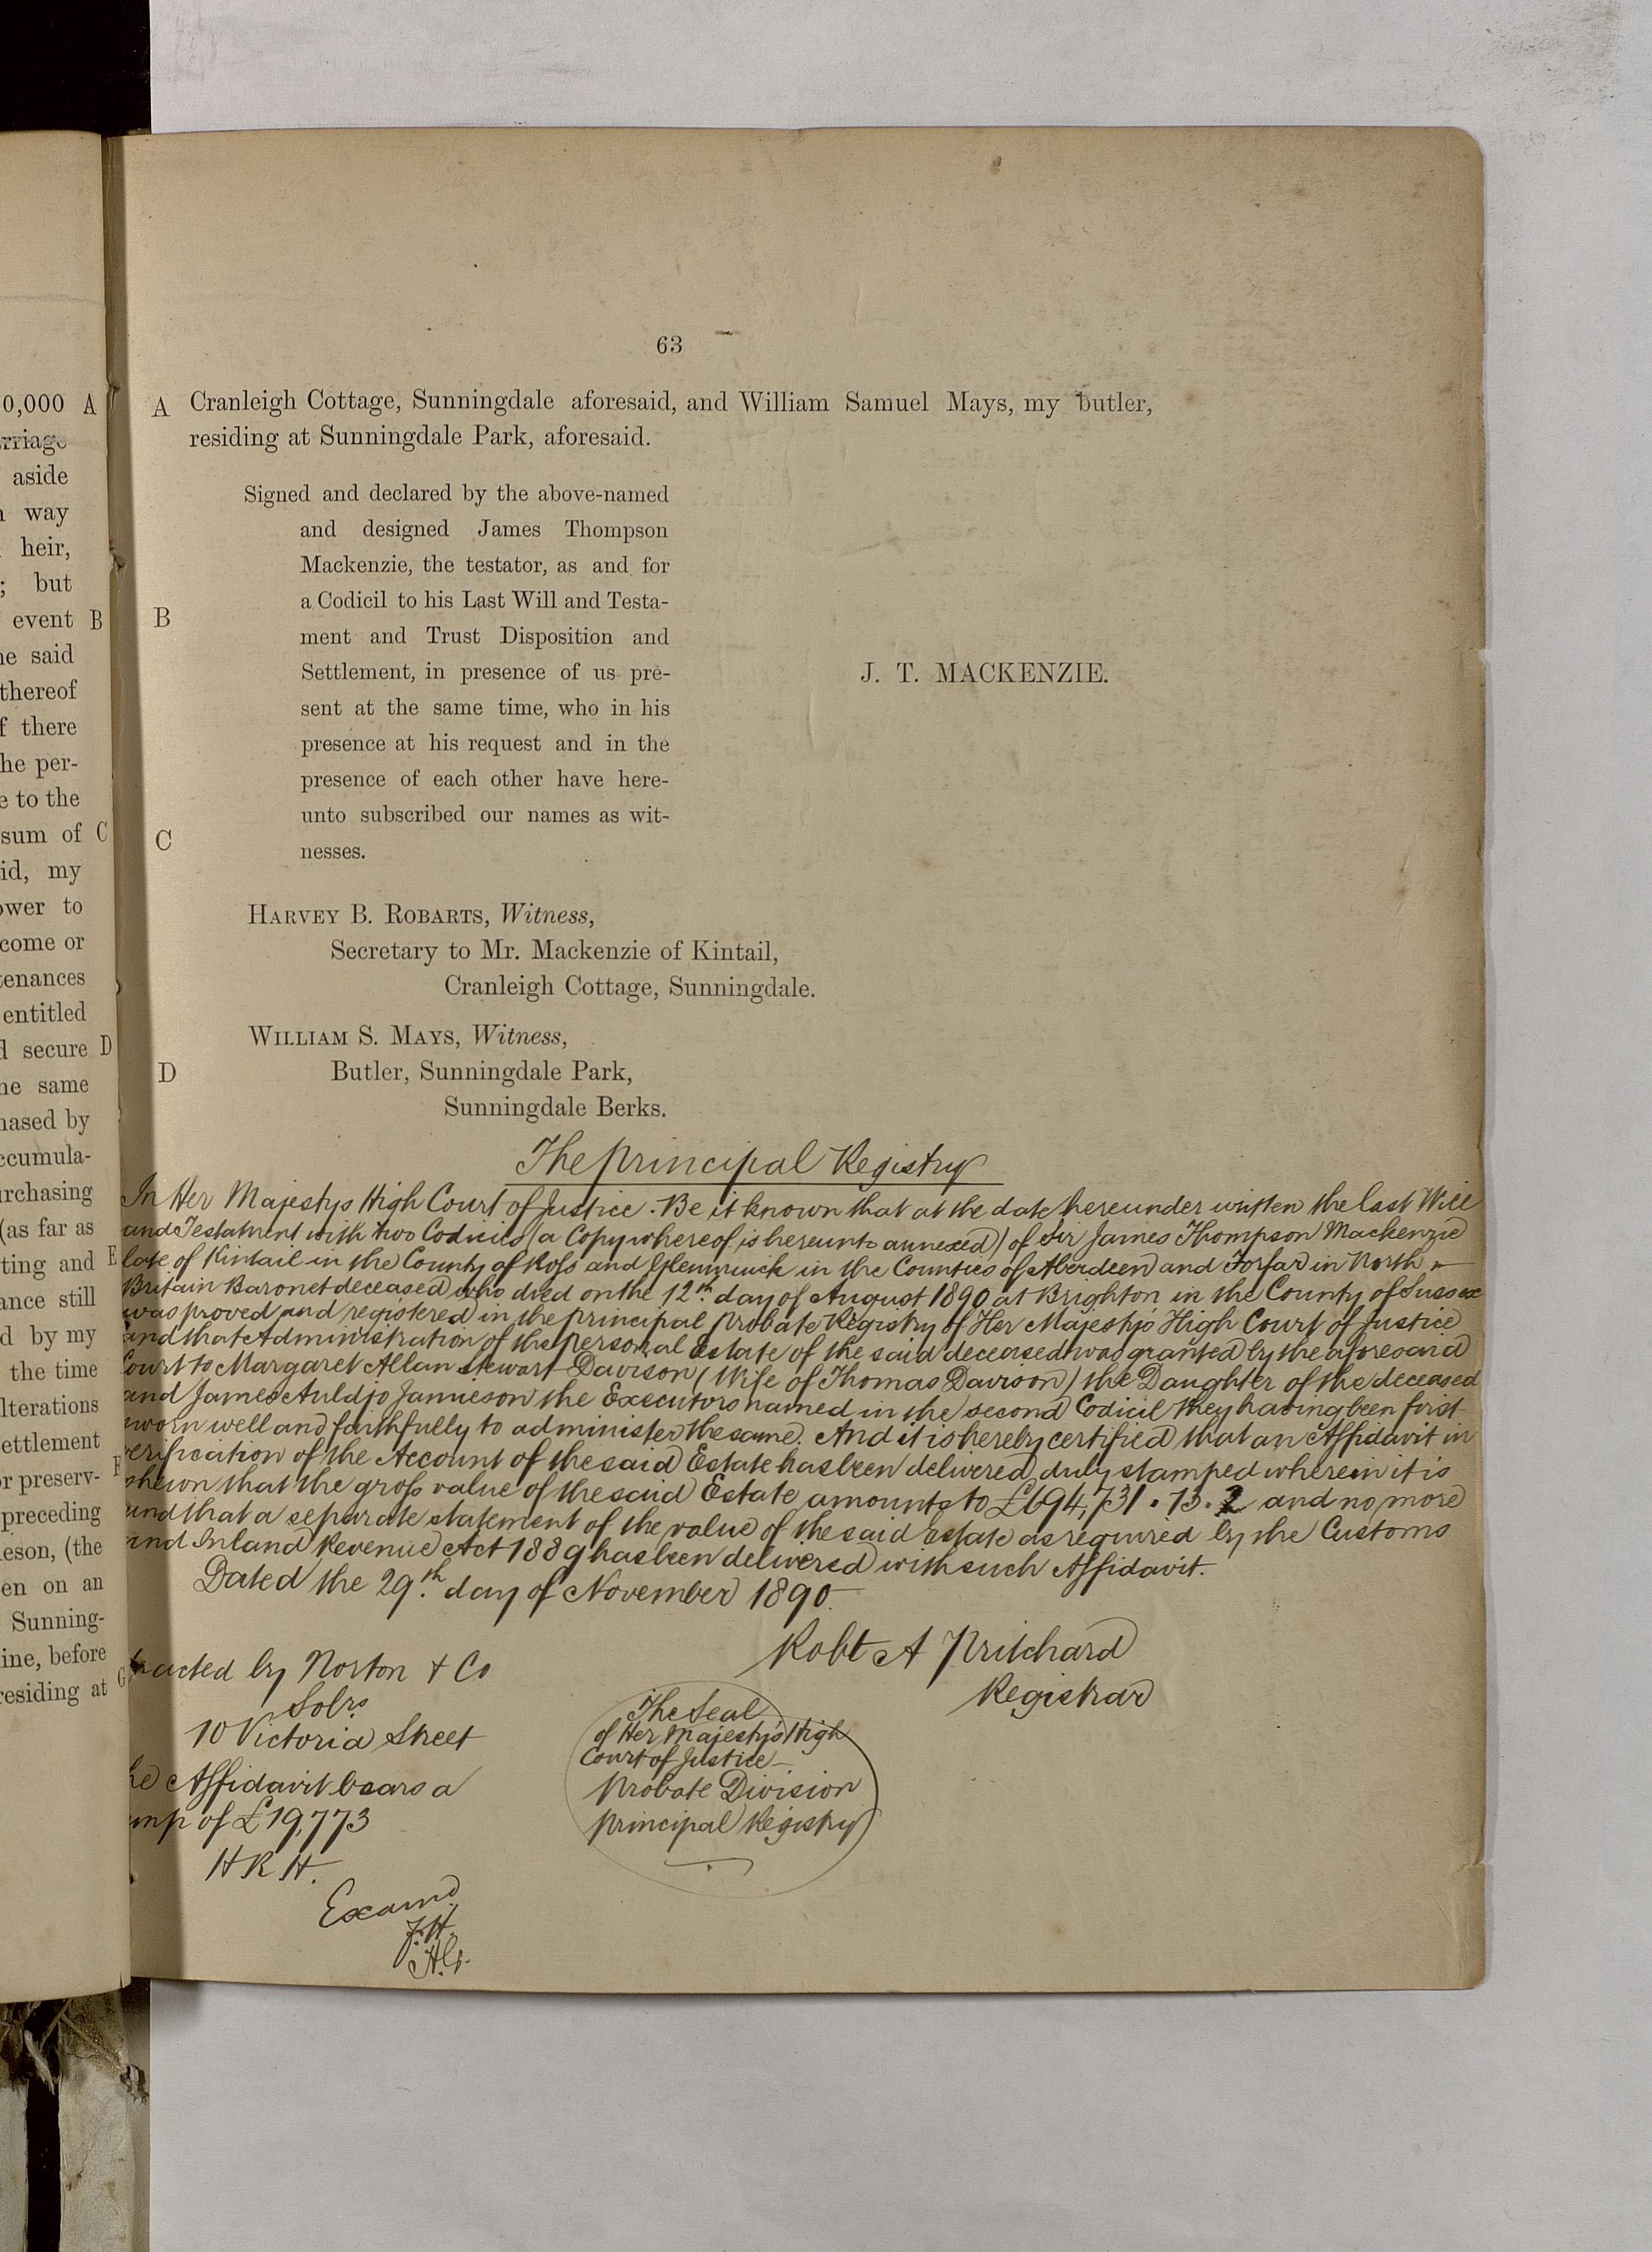 0,000 A
rriage
aside
way
heir,
; but
event B
he said
thereof
f there
he per-
e to the
sum of C
id, my
ower to
come or
tenances
entitled
d secure D
he same
hased by
ccumula-
urchasing
(as far as
ting and E
ance still
d by my
the time
lterations
ettlement
or preserv- F
preceding
ieson, (the
en on an
Sunning-
ine, before
residing at G
63
A Cranleigh Cottage, Sunningdale aforesaid, and William Samuel Mays, my butler,
residing at Sunningdale Park, aforesaid.
Signed and declared by the above-named
and designed James Thompson
Mackenzie, the testator, as and for
a Codicil to his Last Will and Testa-
B
ment and Trust Disposition and
Settlement, in presence of us pre-
J. T. MACKENZIE.
sent at the same time, who in his
presence at his request and in the
presence of each other have here-
unto subscribed our names as wit-
C
nesses.
HARVEY B. ROBARTS, Witness,
Secretary to Mr. Mackenzie of Kintail,
Cranleigh Cottage, Sunningdale.
WILLIAM S. MAYS, Witness,
D Butler, Sunningdale Park,
Sunningdale Berks.
The Principal Registry
In Her Majestys High Court of Justice. Be it known that at the date hereunder written the last Will
and Testatment with two Codicils (a Copy whereof is hereunto annexed) of Sir James Thompson Mackenzie
late of Kintail in the County of Ross and Glenmuick in the Counties of Aberdeen and Forfar in North
Britain Baronet deceased who died on the 12th day of August 1890 at Brighton in the County of Sussex
was proved and registered in the principal Probate Registry of Her Majesty's High Court of Justice
and that Administration of the personal Estate of the said deceased was granted by the aforesaid
Court to Margaret Allan Stewart Davison (Wife of Thomas Davison) the Daughter of the deceased
and James Auldjo Jamieson the Executors named in the second Codicil they having been first
sworn well and faithfully to administer the same. And it is hereby certified that an Affidavit in
verification of the Account of the said Estate has been delivered duly stamped wherein it is
shewn that the gross value of the said Estate amounts to £694,731.13.2 and no more
and that a separate statement of the value of the said Estate as required by the Customs
and Inland Revenue Act 1889 has been delivered with such Affidavit.
Dated the 29th day of November 1890.
Robt A Pritchard
Registrar
racted by Norton & Co
Solrs
10 Victoria Street
he Affidavit bears a
mp of £19,773
H R H.
The Seal
of Her Majesty's High
Court of Justice
Probate Division
Principal Registry
Examd
J.H.